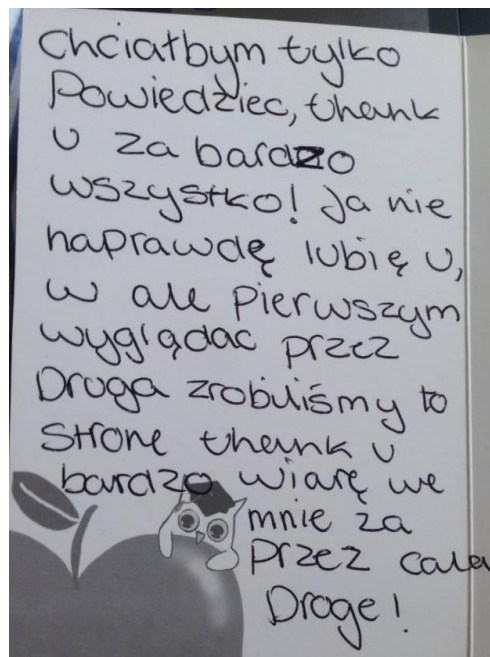 Chciałbym tylko
Powiedziec, thank
U za bardzo
wszystko! Ja nie
naprawdę lubię U,
w ale pierwszym
wyglądac przez
Druga zrobiliśmy to
strone thank U
bardzo wiarę we
mnie za
przez cała
Droge!